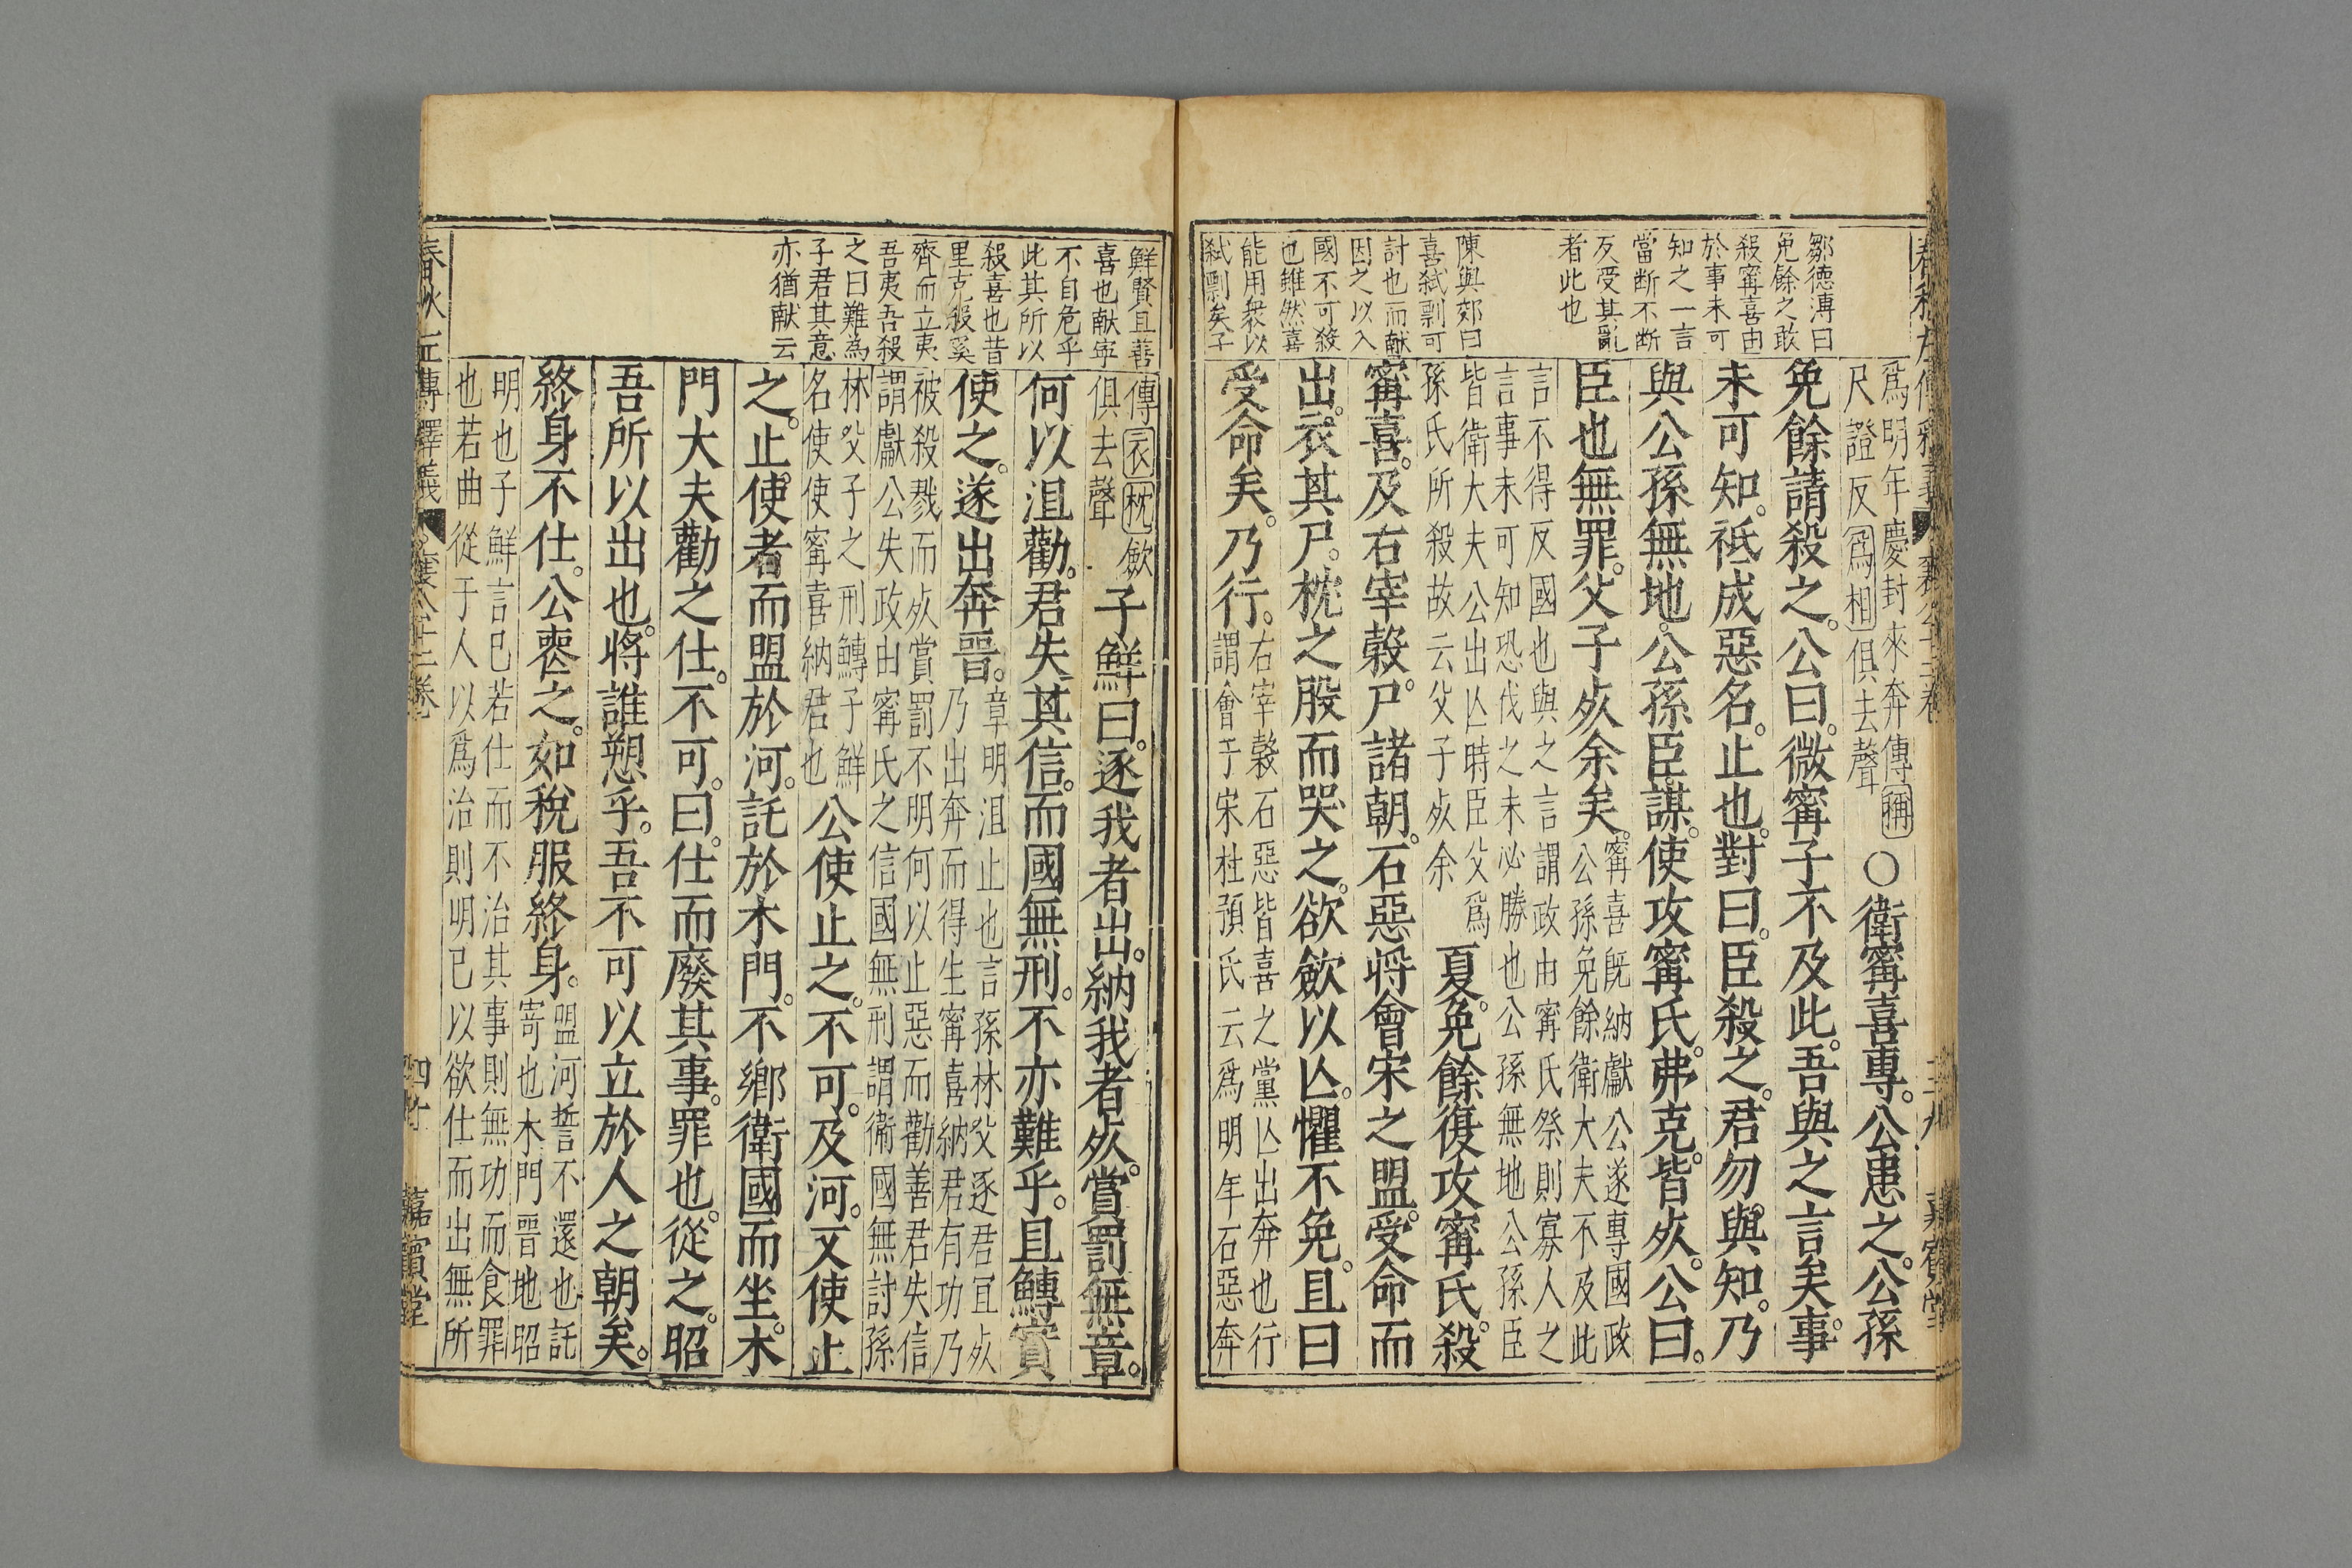 鄒德溥曰
免餘之敢
殺甯喜由
於事未可
知之一言
當断不断
反受其亂
者此也
陳與郊曰
喜弑剽可
討也而献
因之以入
國不可殺
也雖然喜
能用衆以
弑剽矣子
爲明年慶封來奔傳稱
尺證反爲相俱去聲
○衛甯喜專。公患之。公孫
免餘請殺之。公曰。微甯子不及此。吾與之言矣。事
未可知。祗成惡名。止也。對曰。臣殺之。君勿與知。乃
與公孫無地。公孫臣謀。使攻甯氏。弗克。皆死。公曰。
臣也無罪。父子死余矣。
甯喜既納獻公遂專國政
公孫免餘衛大夫不及此
言不得反國也與之言謂政由甯氏祭則寡人之
言事未可知恐伐之未必勝也公孫無地公孫臣
皆衛大夫公出亾時臣父爲
孫氏所殺故云父子死余
夏。免餘復攻甯氏。殺
甯喜。及右宰穀。尸諸朝。石惡將會宋之盟。受命而
出。衣其尸。枕之股而哭之。欲歛以亾。懼不免。且曰
受命矣。乃行。
右宰穀石惡皆喜之黨亾出奔也行
謂會于宋杜預氏云爲明年石惡奔
鮮賢且善
喜也献寧
不自危乎
此其所以
殺喜也昔
里克殺奚
齊而立夷
吾夷吾殺
之曰難為
子君其意
亦猶献云
傳衣枕歛
俱去聲
子鮮曰。逐我者出。納我者死。賞罰無章。
何以沮勸。君失其信。而國無刑。不亦難乎。且鱄實
使之。遂出奔晉。
章明沮止也言孫林父逐君宜死
乃出奔而得生甯喜納君有功乃
被殺戮而死賞罰不明何以止惡而勸善君失信
謂獻公失政由甯氏之信國無刑謂衛國無討孫
林父子之刑鱄子鮮
名使使甯喜納君也
公使止之。不可。及河。又使止
之。止使者而盟於河。託於木門。不鄉衛國而坐。木
門大夫勸之仕。不可。曰。仕而廢其事。罪也。從之。昭
吾所以出也。將誰愬乎。吾不可以立於人之朝矣。
終身不仕。公喪之。如稅服終身。
盟河誓不還也託
寄也木門晉地昭
明也子鮮言已若仕而不治其事則無功而食罪
也若曲從于人以爲治則明已以欲仕而出無所
春秋左傳釋義
襄公十二卷
四十
嘉賓堂